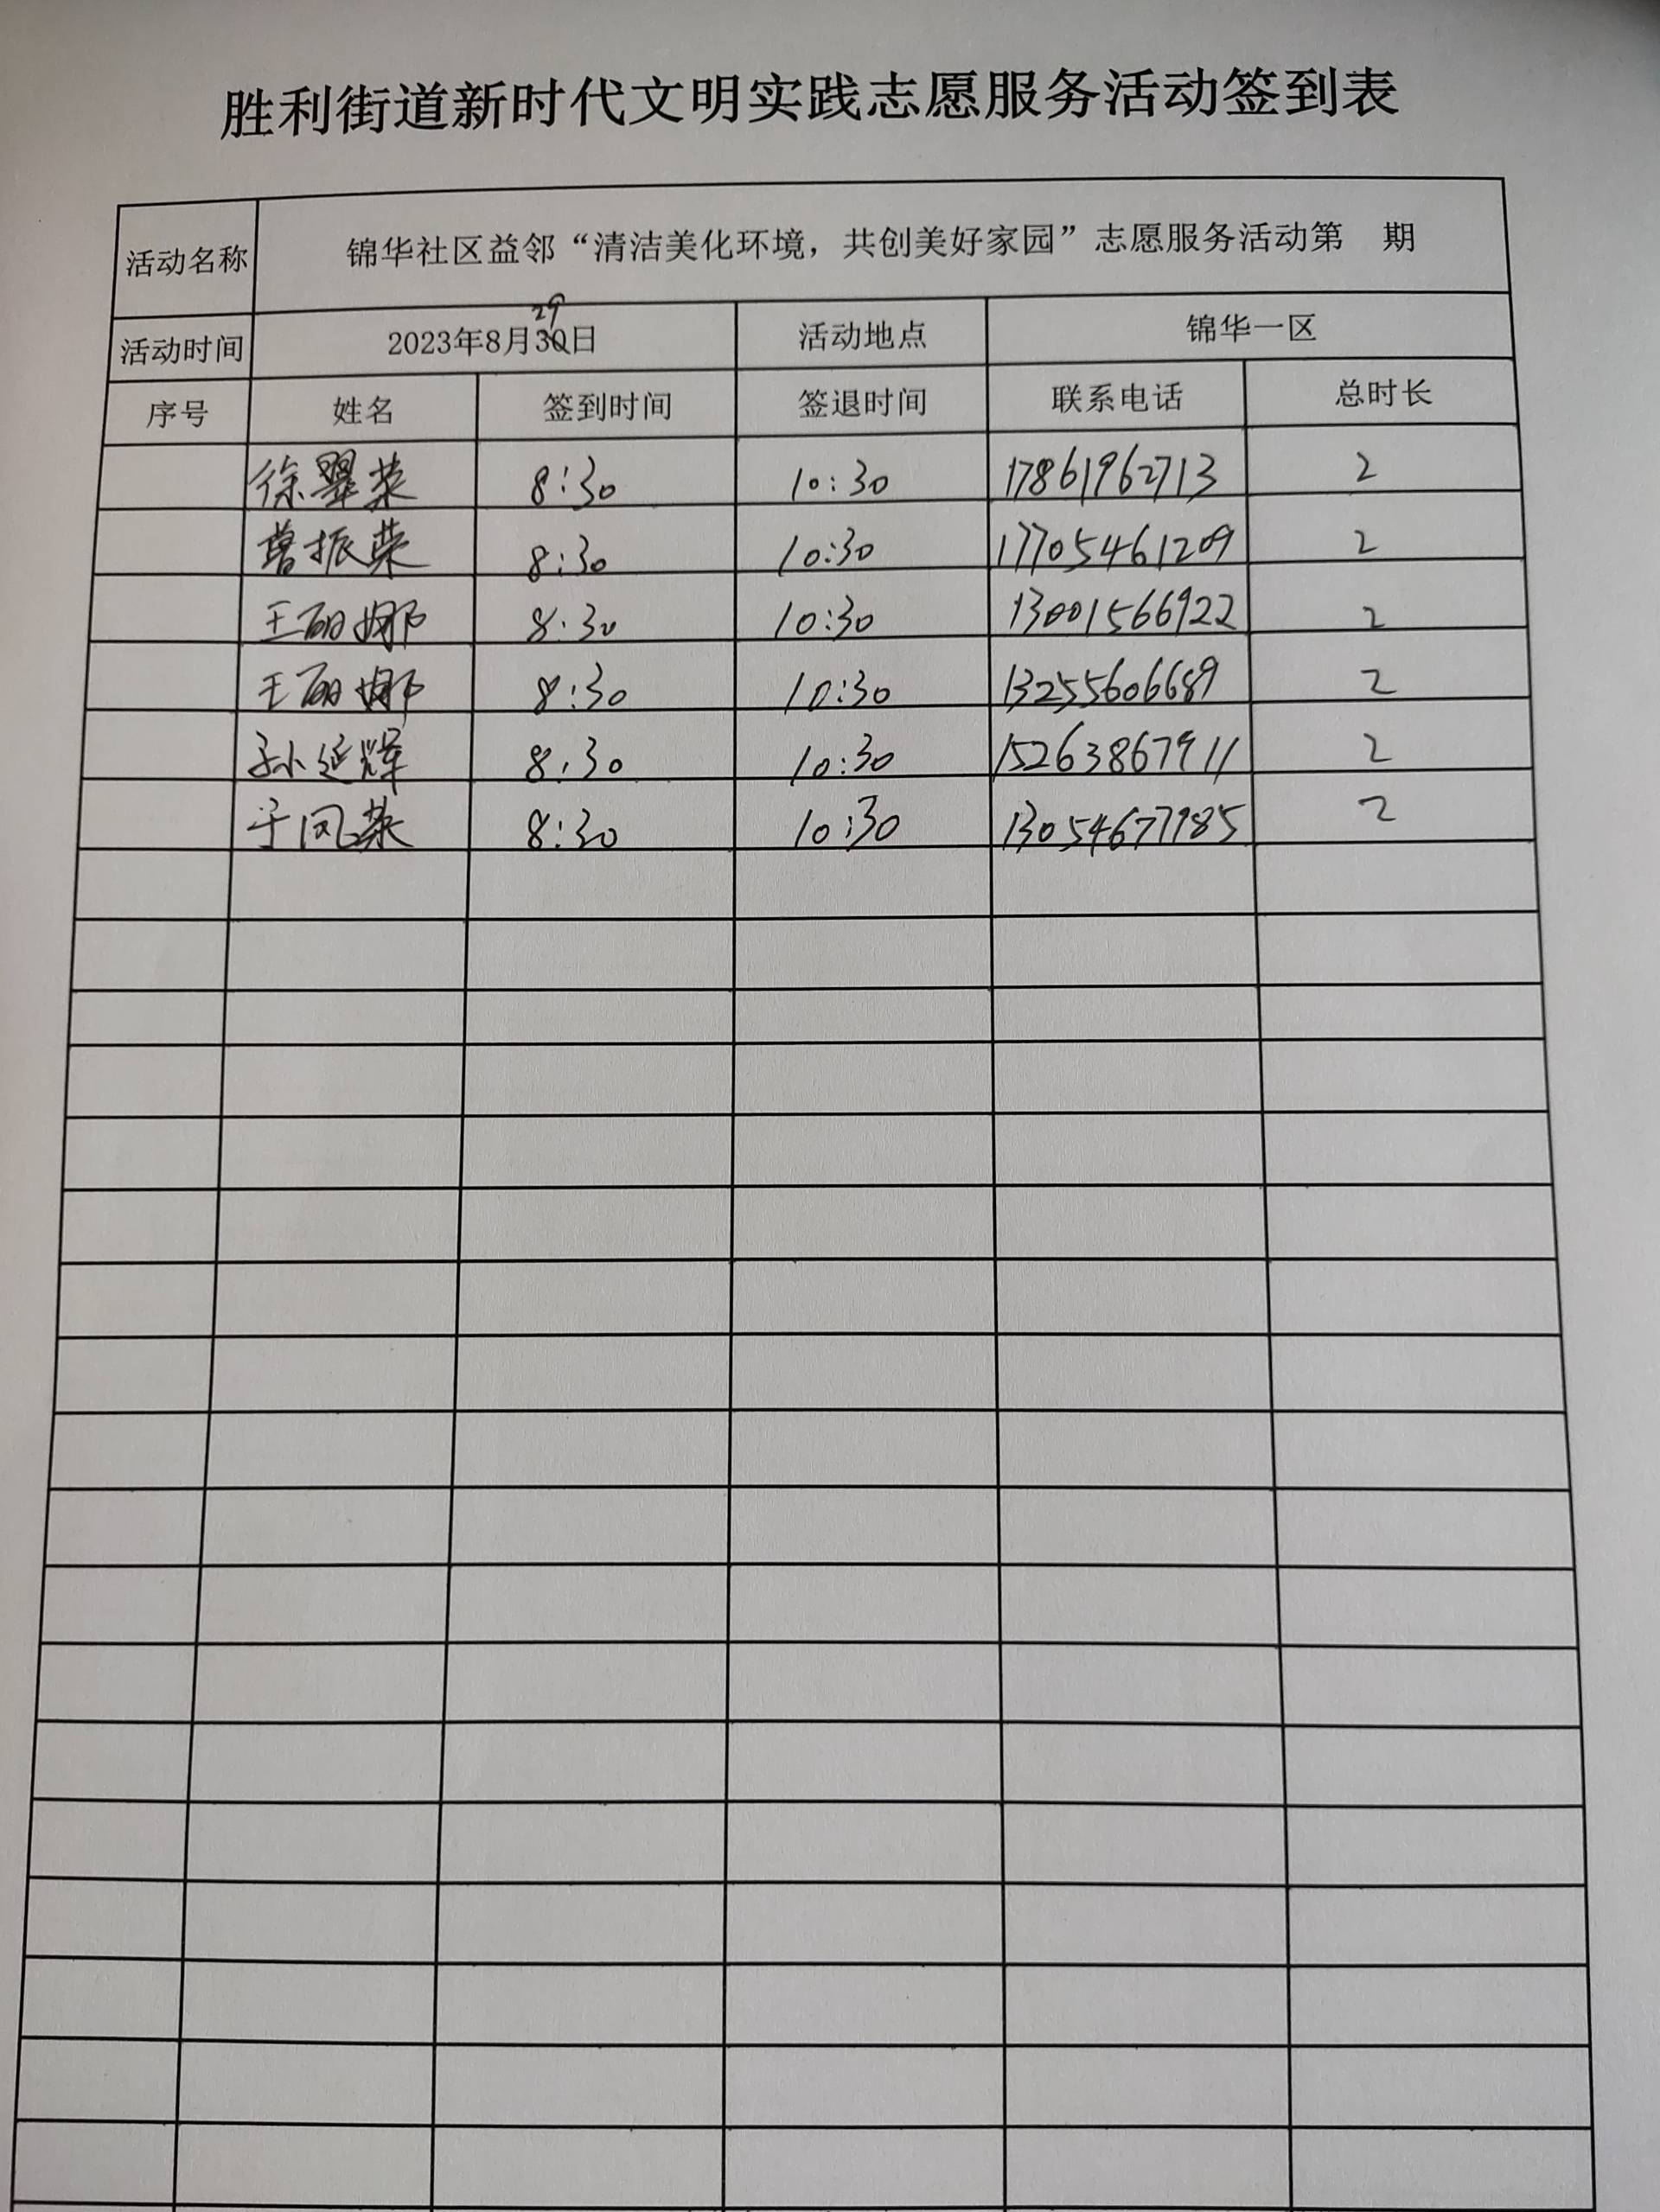 胜利街道新时代文明实践志愿服务活动签到表
活动名称 锦华社区益邻“清洁美化环境，共创美好家园”志愿服务活动第 期
29
活动时间 2023年8月30日 活动地点 锦华一区
序号 姓名 签到时间 签退时间 联系电话 总时长
徐翠荣 8:30 10:30 17861962713 2
曹振荣 8:30 10:30 17705461209 2
王丽娜 8:30 10:30 13001566922 2
王丽娜 8:30 10:30 13255606689 2
孙延辉 8:30 10:30 15263867911 2
于凤荣 8:30 10:30 13054677985 2